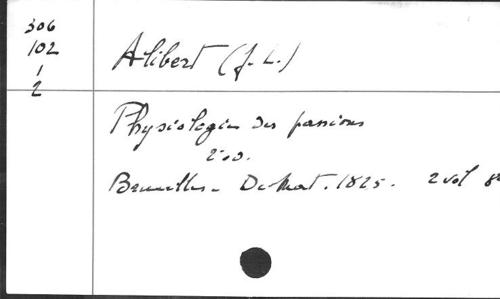 306
102
1
2
Alibert (J. L.)
Physiologie des passions
2e éd.
Bruxelles - De Mat. 1825. 2 vol 8